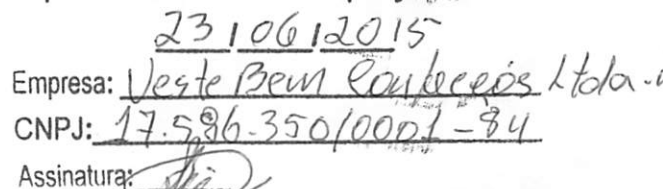 23/06/2015
Empresa: Veste Bem Confecções Ltda-
CNPJ: 17.586.350/0001-84
Assinatura: